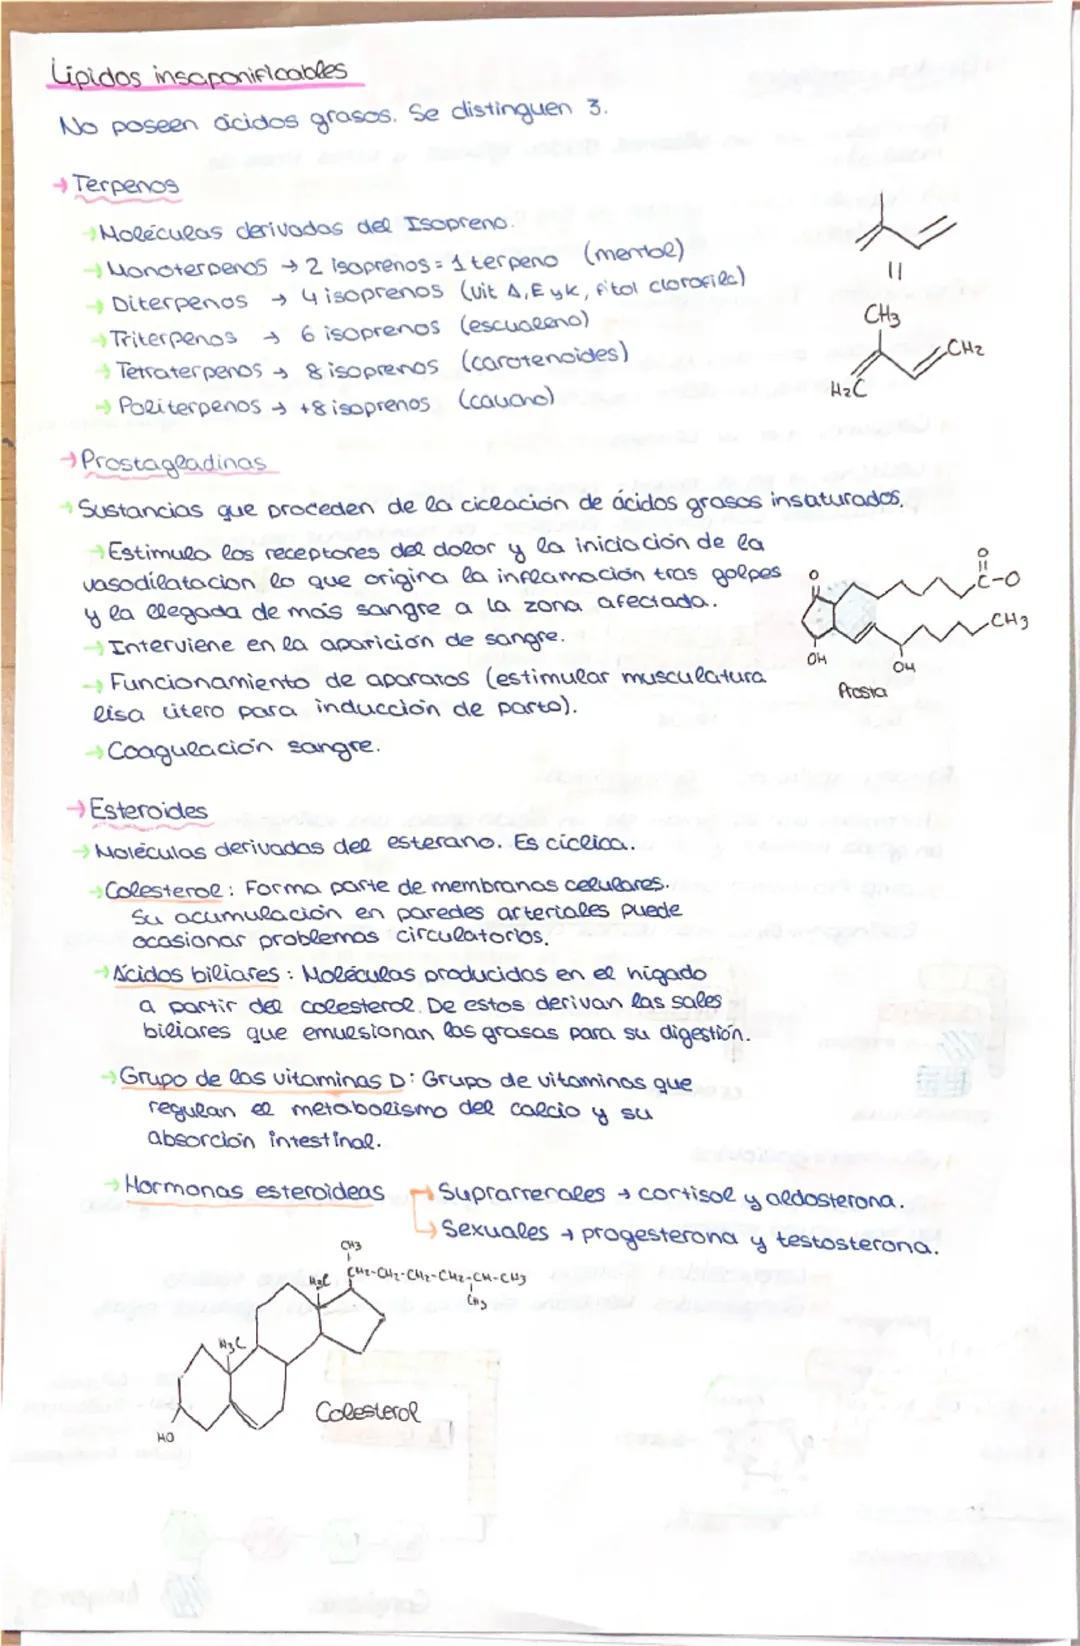 Lipidos insaponificables
No poseen ácidos grasos. Se distinguen 3.
→ Terpenos
→ Moléculas derivadas del Isopreno.
→ Monoterpenos → 2 isoprenos = 1 terpeno (mentol)
→ Diterpenos → 4 isoprenos (vit A, E y k, fitol clorofila)
→ Triterpenos → 6 isoprenos (escualeno)
→ Tetraterpenos → 8 isoprenos (carotenoides)
→ Politerpenos → +8 isoprenos (caucho)
CH3
CH2
H2C
→ Prostagladinas
→ Sustancias que proceden de la ciclación de ácidos grasos insaturados.
→ Estimula los receptores del dolor y la iniciación de la
vasodilatacion lo que origina la inflamación tras golpes
y la llegada de más sangre a la zona afectada.
→ Interviene en la aparición de sangre.
→ Funcionamiento de aparatos (estimular musculatura
lisa útero para inducción de parto).
→ Coagulación sangre.
O
O
C-O
CH3
OH
OH
Prosta
→ Esteroides
→ Moléculas derivadas del esterano. Es cíclica.
→ Colesterol: Forma parte de membranas celulares.
Su acumulación en paredes arteriales puede
ocasionar problemas circulatorios.
→ Ácidos biliares: Moléculas producidas en el hígado
a partir del colesterol. De estos derivan las sales
biliares que emulsionan las grasas para su digestión.
→ Grupo de las vitaminas D: Grupo de vitaminas que
regulan el metabolismo del calcio y su
absorción intestinal.
→ Hormonas esteroideas → Suprarrenales → cortisol y aldosterona.
→ Sexuales → progesterona y testosterona.
CH3
H3C CH2-CH2-CH2-CH2-CH-CH3
CH3
H3C
HO
Colesterol